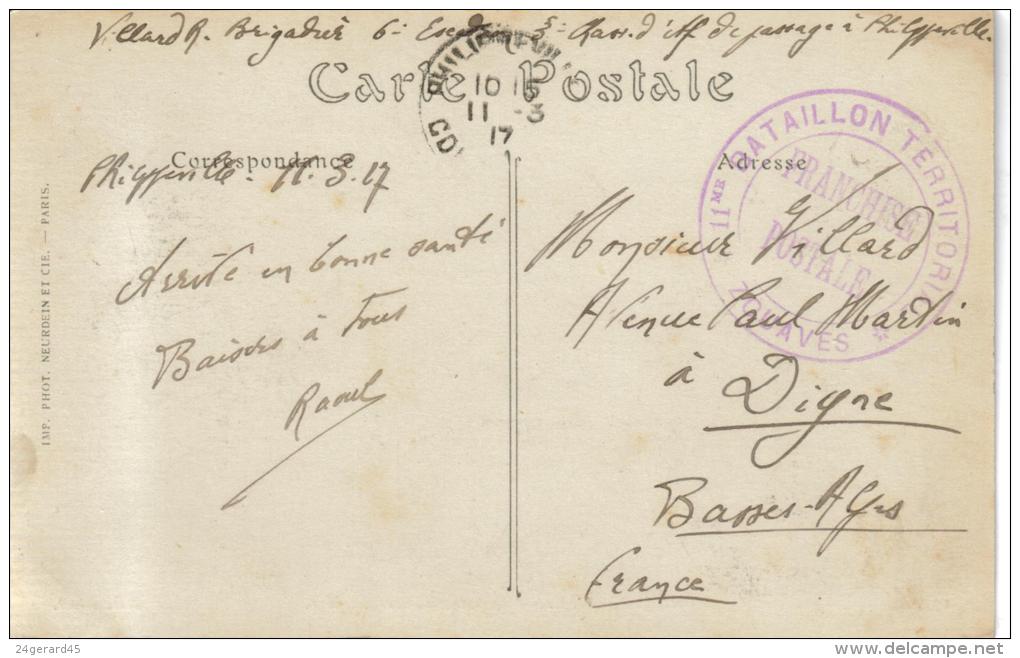 Villard R. Brigadier 6e Escadron 5e Chass. d'Aff. de passage à Philippeville.
Carte Postale
PHILIPPEVILLE
10 15
11 -3
17
CO
11ME BATAILLON TERRITORIAL
ZOUAVES *
FRANCHISE
POSTALE
Correspondance
Adresse
Philippeville. 11.3.17
Arrivé en bonne santé
Baisers à Tous
Raoul
Monsieur Villard
Avenue Paul Martin
à
Digne
Basses-Alpes
France
IMP. PHOT. NEURDEIN ET CIE. — PARIS.
24gerard45
www.delcampe.net